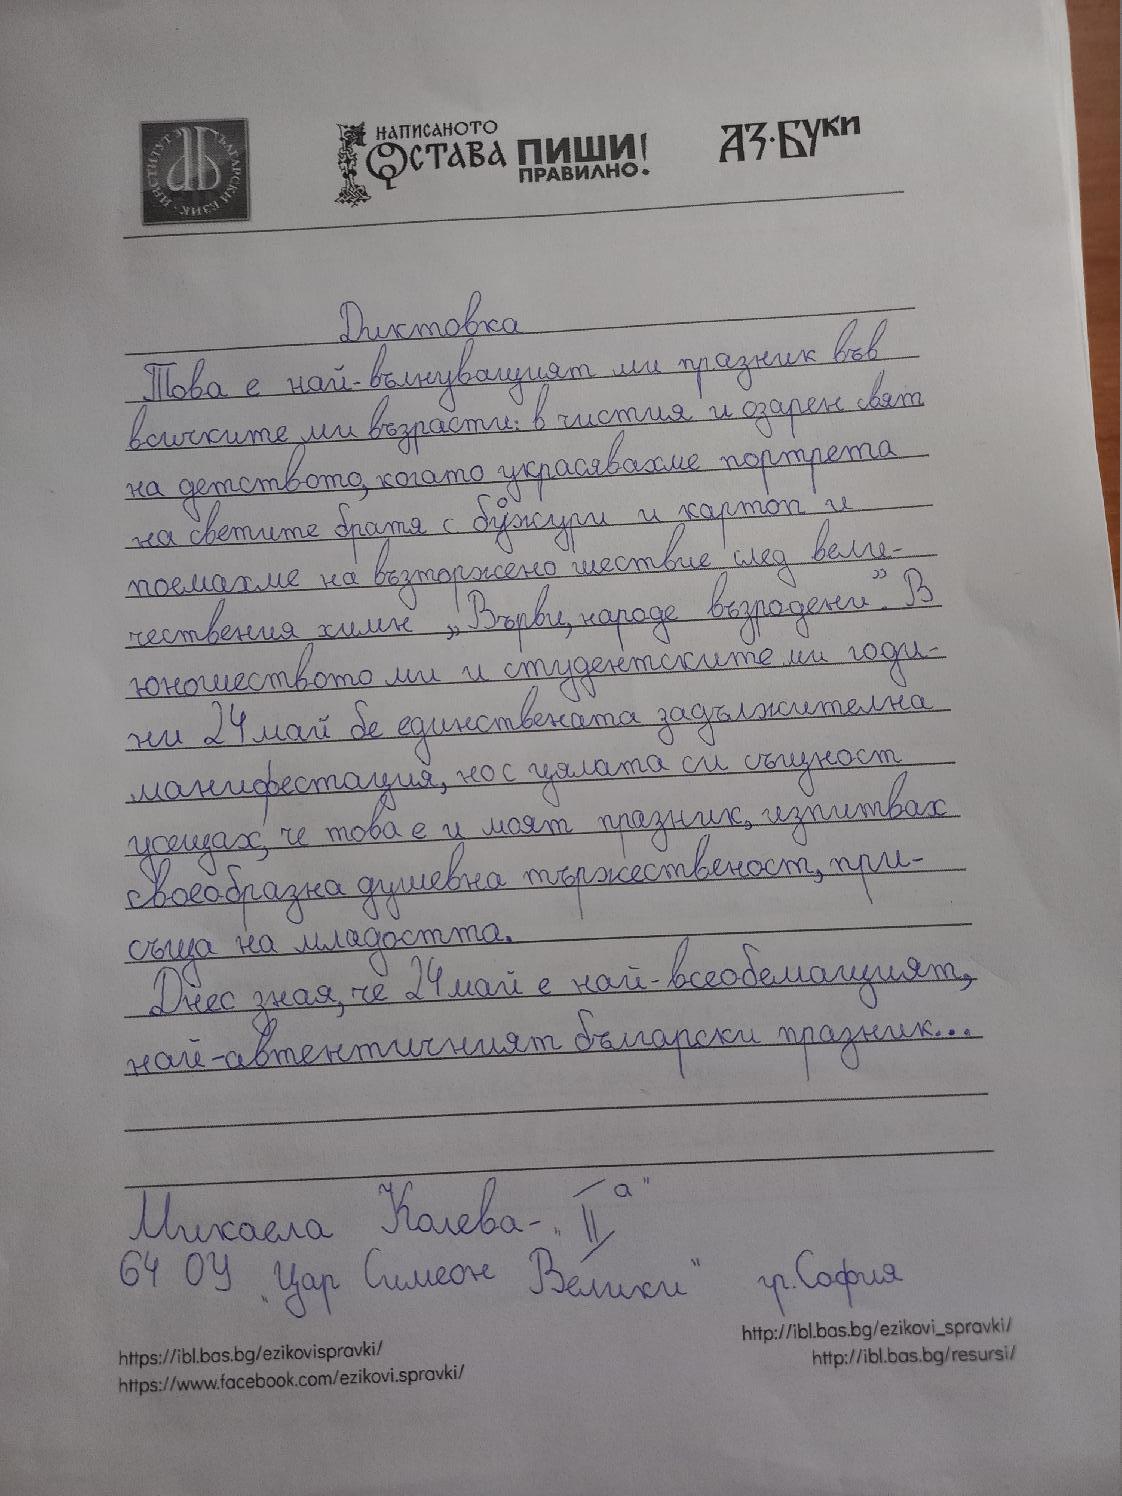 ИНСТИТУТ ЗА БЪЛГАРСКИ ЕЗИК
НАПИСАНОТО
ОСТАВА
ПИШИ!
ПРАВИЛНО.
АЗ·БУКИ
Диктовка
Това е най-вълнуващият ми празник във
всичките ми възрасти: в чистия и озарен свят
на детството, когато украсявахме портрета
на светите братя с божури и картоп и
поемахме на възторжено шествие след вели-
чествения химн „Върви, народе възродени". В
юношеството ми и студентските ми годи-
ни 24 май бе единствената задължителна
манифестация, но с цялата си същност
усещах, че това е и моят празник, изпитвах
своеобразна душевна тържественост, при-
съща на младостта.
Днес зная, че 24 май е най-всеобемащият,
най-автентичният български празник...
Микаела Колева - „II а"
64 ОУ „Цар Симеон Велики" гр. София
https://ibl.bas.bg/ezikovispravki/
https://www.facebook.com/ezikovi.spravki/
http://ibl.bas.bg/ezikovi_spravki/
http://ibl.bas.bg/resursi/